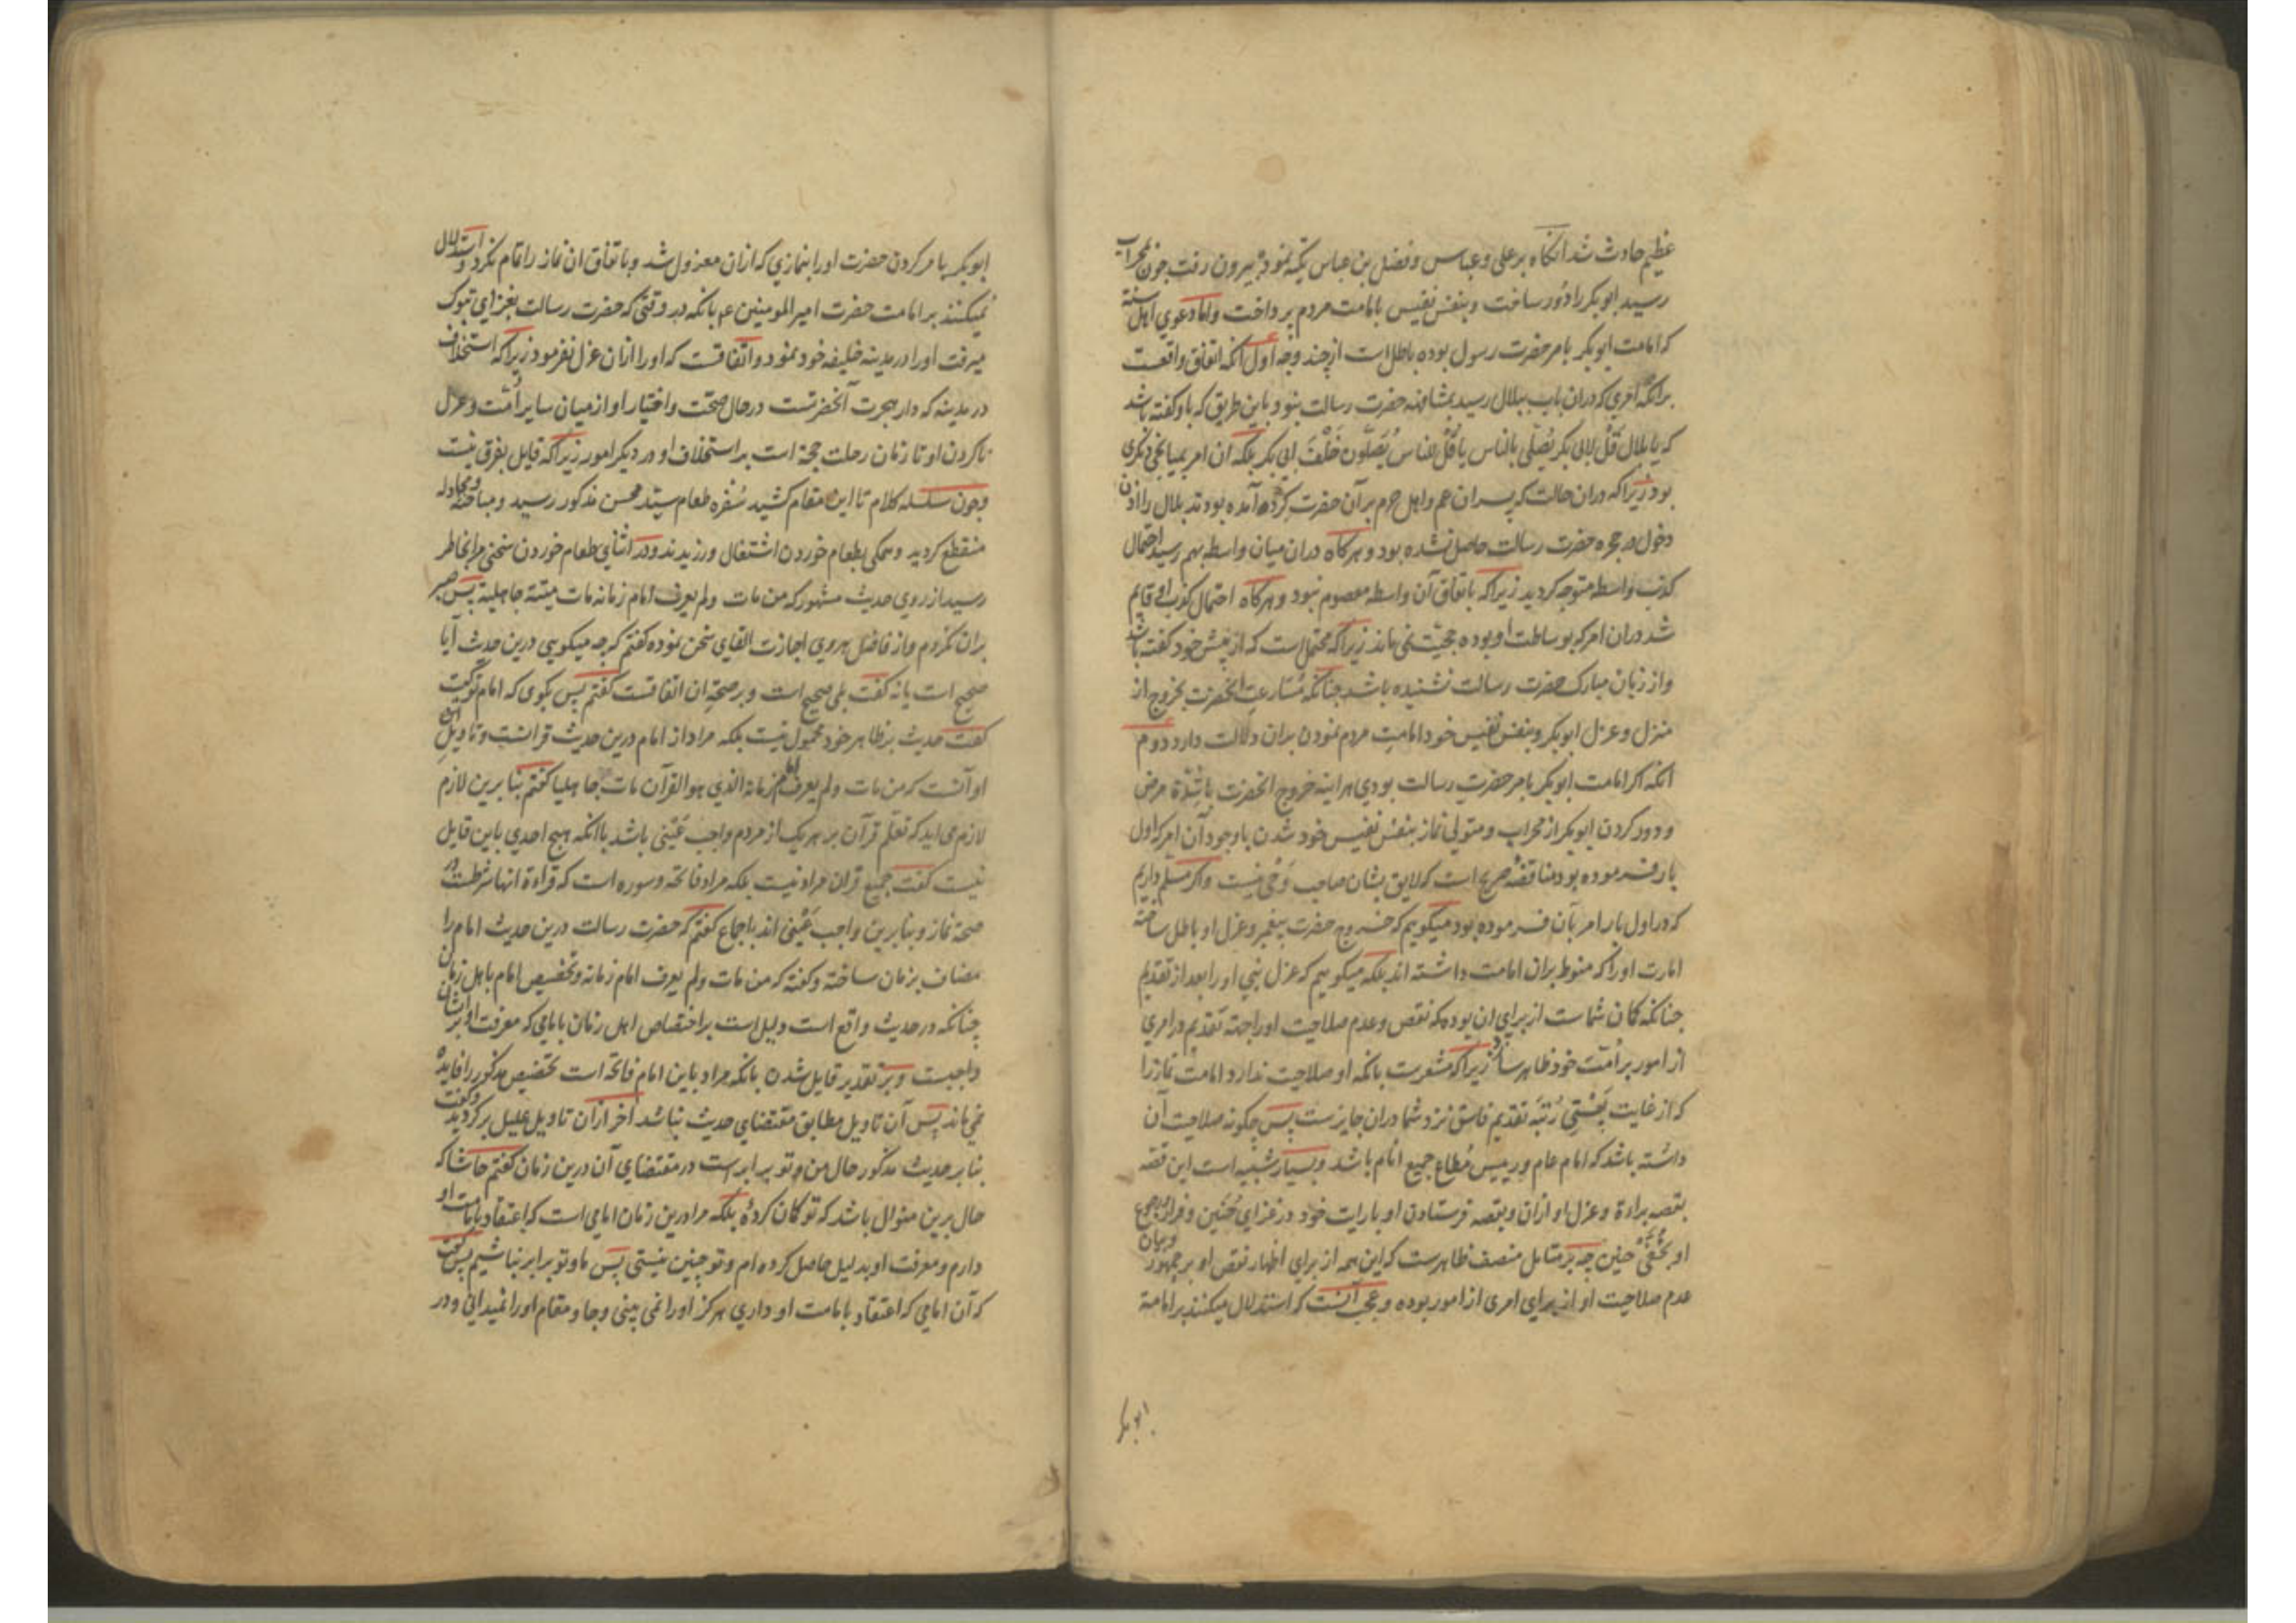 عظیم حادث شد آنگاه بر علی و عباس و فضل بن عباس تکیه نموده بیرون رفت چون بمحراب
رسید ابوبکر را دور ساخت و بنفس نفیس بامامت مردم پرداخت و اما دعوی اهل سنة
که امامت ابوبکر بامر حضرت رسول بوده باطل است از چند وجه اول آنکه اتفاق واقعست
برانکه امری که دران باب ببلال رسید بمشافهه حضرت رسالت نبود باین طریق که باو گفته باشد
که یا بلال قُل لابی بکر یُصَلّی بالناس یا قُل للناس یُصَلّون خَلْفَ ابی بکر بلکه ان امر بمیانجی دیگری
بود زیرا که دران حالت که پسران عم و اهل حرم بر آن حضرت گرد آمده بودند بلال را اذن
دخول در حجره حضرت رسالت حاصل نشده بود و هرگاه دران میان واسطه بهم رسید احتمال
کذب واسطه متوجه کردید زیرا که باتفاق آن واسطه معصوم نبود و هرگاه احتمال کذب او قایم
شد دران امر که بوساطت او بوده حجیّت نمی ماند زیرا که محتمل است که از پیش خود گفته باشد
و از زبان مبارک حضرت رسالت نشنیده باشد چنانکه مُسارعت انحضرت بخروج از
منزل و عزل ابوبکر و بنفس نفیس خود امامت مردم نمودن بران دلالت دارد دوم
آنکه اگر امامت ابوبکر بامر حضرت رسالت بودی هر اینه خروج انحضرت با شِدّة مرض
و دور کردن ابوبکر از محراب و متولی نماز بنفس نفیس خود شدن با وجود آن امر که اول
بار فرموده بود مناقضه صریح است که لایق بشان صاحب وَحی نیست و اگر مسلم داریم
که در اول بار امر بآن فرموده بود میگویم که خروج حضرت پیغمبر و عزل او باطل ساخته
امارت او را که منوط بران امامت داشته اند بلکه میگوییم که عزل نبی او را بعد از تقدیم
چنانکه گمان شماست از برای ان بوده که نقص و عدم صلاحیت او را جهة تقدیم در امری
از امور بر اُمّت خود ظاهر سازد زیرا که مشعرست بانکه او صلاحیت ندارد امامت نماز را
که از غایت پَستی رُتبَه تقدیم فاسق نزد شما دران جایزست پس چگونه صلاحیت آن
داشته باشد که امام عام و رییس مُطاع جمیع انام باشد و بسیار شبیه است این قصه
بقصه براءة و عزل او ازان و بقصه فرستادن او با رایات خود در غزای حُنین و فرار
او بخفّی حنین چه بر متامل منصف ظاهرست که این همه از برای اظهار نقص او بر جمهور و بیان
عدم صلاحیت او از برای امری از امور بوده و عجب آنست که استدلال میکنند بر امامة
ابوبکر
ابوبکر بامر کردن حضرت او را بنمازی که ازان معزول شد و باتفاق ان نماز را تمام نکرد و استدلال
نمیکنند بر امامت حضرت امیر المومنین ع م بانکه در وقتی که حضرت رسالت بغزای تبوک
میرفت او را در مدینه خلیفه خود نمود و اتفاقست که او را ازان عزل نفرمود زیرا که استخلاف
در مدینه که دار هجرت آنحضرتست در حال صحّت و اختیار او از میان سایر اُمّت و عزل
ناکردن او تا زمان رحلت حجة است بر استخلاف او در دیگر امور زیرا که قایل بفرق نیست
و چون سلسله کلام تا این مقام کشید سُفره طعام سیّد محسن مذکور رسید و مباحثه و مجادله
منقطع کردید و همگی بطعام خوردن اشتغال ورزیدند و در اثنای طعام خوردن سخنی مرا بخاطر
رسید از روی حدیث مشهور که من مات و لم یعرف امام زمانه مات میتة جاهلیة پس صبر
بران نکردم و از فاضل هروی اجازت القای سخن نموده گفتم که چه میگویی درین حدیث آیا
صحیح است یا نه گفت بلی صحیح است و بر صحة ان اتفاقست گفتم پس بگوی که امام تو کیست
گفت حدیث بر ظاهر خود محمول نیست بلکه مراد از امام درین حدیث قرانست و تاویل
او آنست که من مات و لم یعرف امام زمانه الذی هو القرآن مات جاهلیا گفتم بنا برین لازم
لازم می اید که تعلّم قرآن بر هر یک از مردم واجب عَینی باشد با انکه هیچ احدی باین قایل
نیست گفت جمیع قران مراد نیست بلکه مراد فاتحه و سوره است که قراءة انها شرطست در
صحة نماز و بنا برین واجب عَینی اند باجماع گفتم که حضرت رسالت درین حدیث امام را
مضاف بزمان ساخته و گفته که من مات و لم یعرف امام زمانه و تخصیص امام باهل زمان
چنانکه در حدیث واقع است دلیل است بر اختصاص اهل زمان بامامی که معرفت او بر ایشان
واجبست و بر تقدیر قایل شدن بانکه مراد باین امام فاتحه است تخصیص مذکور را فایده
نمی ماند پس آن تاویل مطابق مقتضای حدیث نباشد آخر ازان تاویل علیل برکردید و گفت
بنا بر حدیث مذکور حال من و تو برابرست در مقتضای آن درین زمان گفتم حاشا که
حال برین منوال باشد که تو گمان کردهٔ بلکه مرا درین زمان امامی است که اعتقاد بامامت او
دارم و معرفت او بدلیل حاصل کرده ام و تو چنین نیستی پس ما و تو برابر نباشیم پس گفت
که آن امامی که اعتقاد بامامت او داری هرگز او را نمی بینی و جا و مقام او را نمیدانی و در